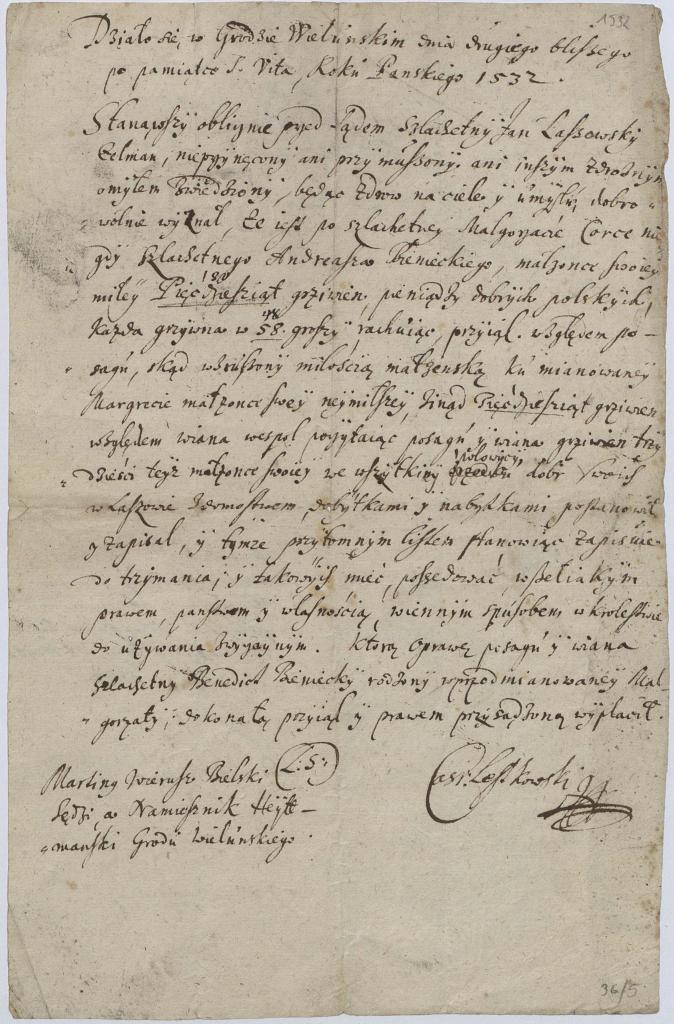 1532
Działo się, w Grodzie Wieluńskim dnia drugiego bliszego
po pamiątce S. Vita, Roku Panskiego 1532.
Stanąwszy oblignie przed Sądem Szlachetny Jan Laszowsky
ani przymuszony, ani inszym zdrożnym
omyłem, będąc zdrow na ciele y umyslu, dobro-
wolnie wyznał, że iest po szlachetney Małgorzacie Corce nie
gdy szlachetnego Andreasza Biemieckiego, małzonce swoiey
miłey Pięcdziesiąt grziwien, pieniądzy dobrych polskych,
Kazda grzywna w 58. groszy rachuiąc, przyiął. względem po-
sagu, skąd wzruszony miłoscią małzenską ku mianowaney
Margrecie małzonce swey neymilszey, Pięcdziesiąt grziwien
względem wiana wespol poczytaiąc posagu y wiana grziwien trzy
dziesci teyż małzonce swoiey we wszytkiny połowicy dobr swoich
w Laszowie, dobytkami y nabytkami postanowił
y zapisał, y tymże przytomnym listem stanowiąc zapisuie
do trzymania, y takowych mieć, possedować, wszeliakym
prawem, panstwem y własnoscią, wiennym sposobem w krolestwie
do używania zwyczaynym. Ktorą oprawę posagu y wiana
szlachetny Benedict Biemiecky rodzony wyzpodmianowaney Mał-
gorzaty, dokonałą przyiął y prawem przysądzoną wypłacił.
Marting Wierusz Bielski (L.S:)
Sędzi, a Namiesznik Heyt-
manski Grodu Wieluńskiego.
Casr. Leszkowski
36/5